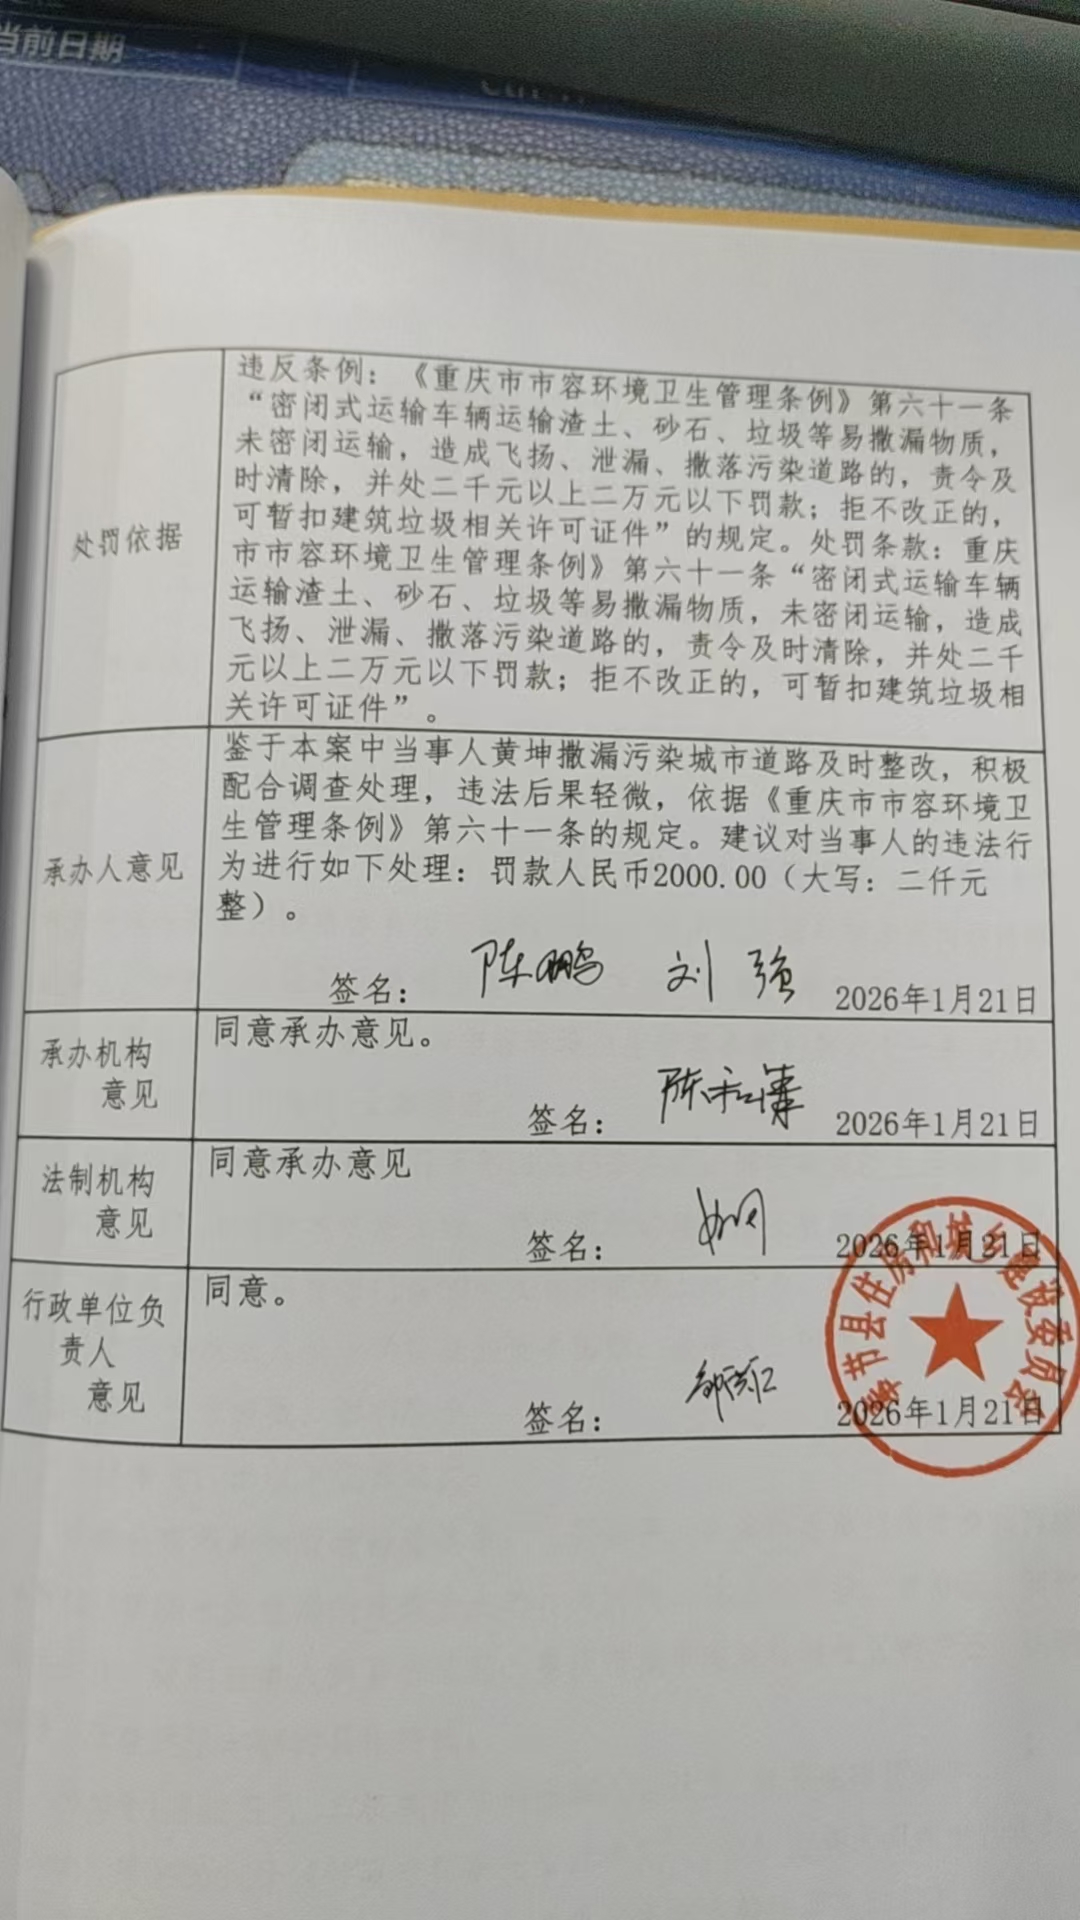 当前日期
违反条例：《重庆市市容环境卫生管理条例》第六十一条
“密闭式运输车辆运输渣土、砂石、垃圾等易撒漏物质，
未密闭运输，造成飞扬、泄漏、撒落污染道路的，责令及
时清除，并处二千元以上二万元以下罚款；拒不改正的，
可暂扣建筑垃圾相关许可证件”的规定。处罚条款：重庆
市市容环境卫生管理条例》第六十一条“密闭式运输车辆
运输渣土、砂石、垃圾等易撒漏物质，未密闭运输，造成
飞扬、泄漏、撒落污染道路的，责令及时清除，并处二千
元以上二万元以下罚款；拒不改正的，可暂扣建筑垃圾相
关许可证件”。
处罚依据
鉴于本案中当事人黄坤撒漏污染城市道路及时整改，积极
配合调查处理，违法后果轻微，依据《重庆市市容环境卫
生管理条例》第六十一条的规定。建议对当事人的违法行
为进行如下处理：罚款人民币2000.00（大写：二仟元
整）。
承办人意见
签名： 陈鹏 刘强 2026年1月21日
承办机构
意见
同意承办意见。
签名： 2026年1月21日
法制机构
意见
同意承办意见
签名： 2026年1月21日
行政单位负
责人
意见
同意。
签名： 2026年1月21日
奉节县住房和城乡建设委员会